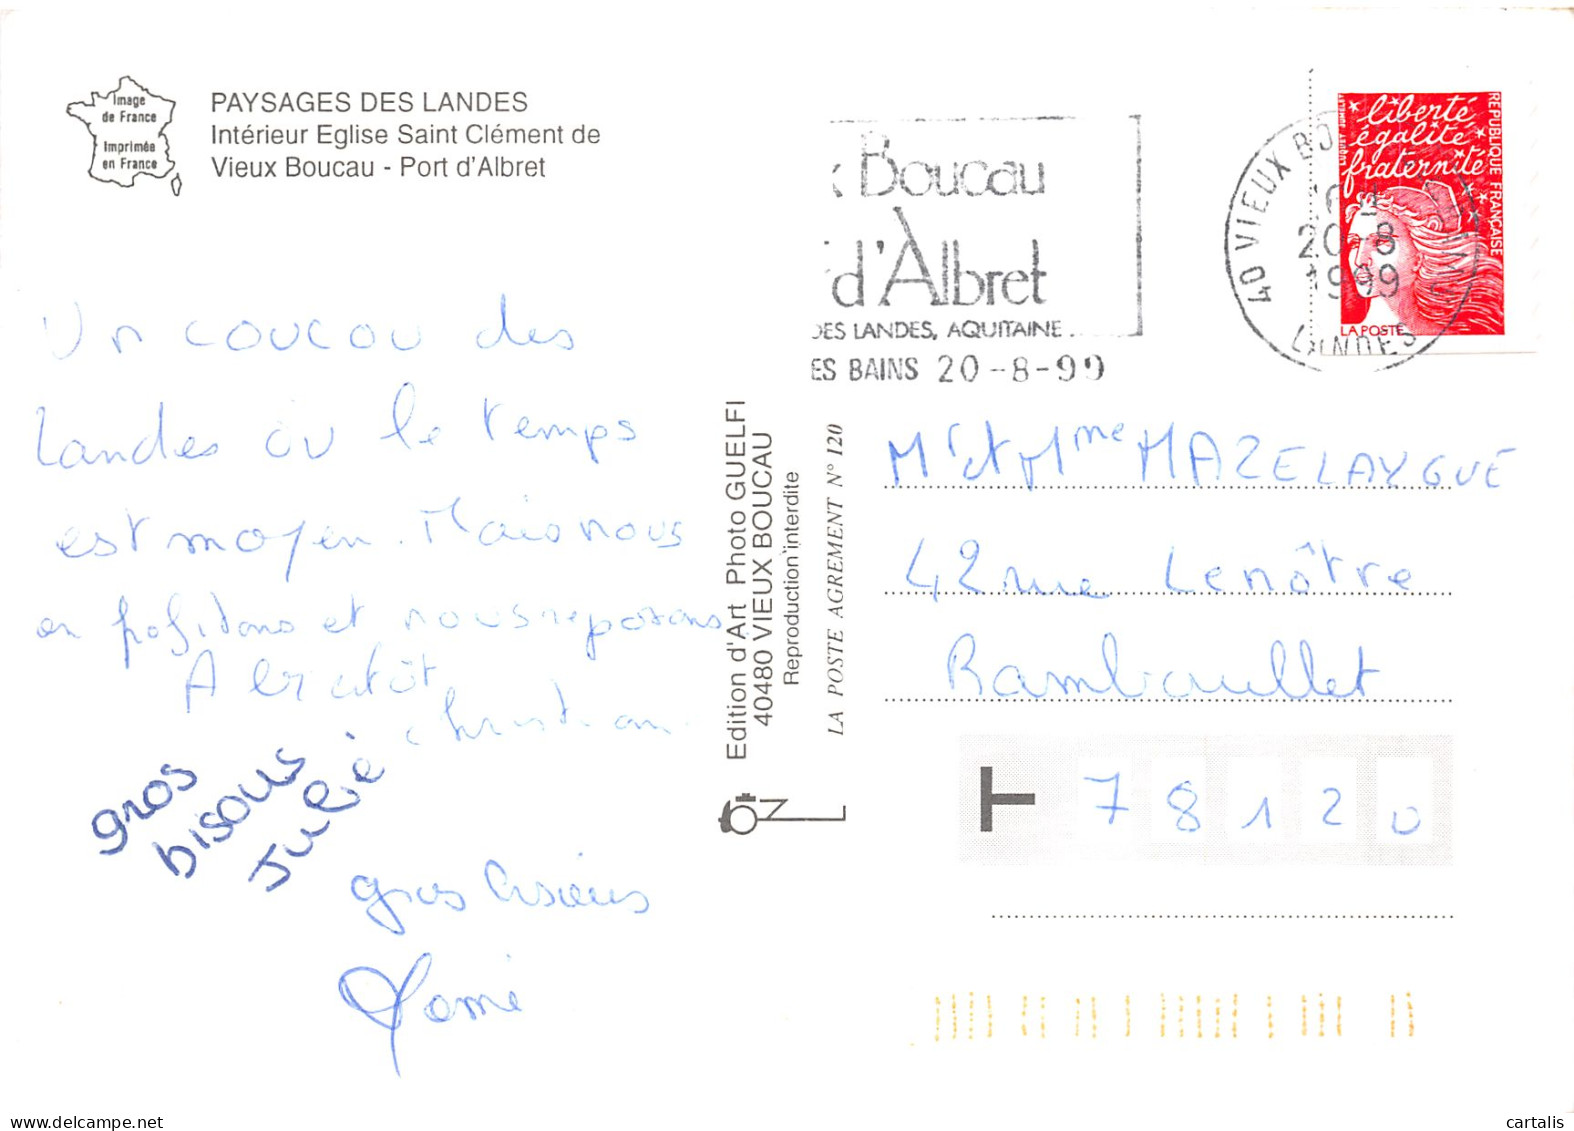 Image
de France
Imprimée
en France
PAYSAGES DES LANDES
Intérieur Eglise Saint Clément de
Vieux Boucau - Port d'Albret
x Boucau
d'Albret
DES LANDES, AQUITAINE
ES BAINS 20-8-99
40 VIEUX BO
20-8
1999
LANDES
liberté
égalité
fraternité
REPUBLIQUE FRANÇAISE
LA POSTE
Un coucou des
Landes où le temps
est moyen. Mais nous
en profitons et nous reposons
A bientôt
Christian
gros
bisous
Julie
gros bisous
Edition d'Art Photo GUELFI
40480 VIEUX BOUCAU
Reproduction interdite
LA POSTE AGREMENT N° 120
Mr et Mme MAZELAYGUE
42 rue Lenôtre
Rambouillet
78120
cartalis
www.delcampe.net